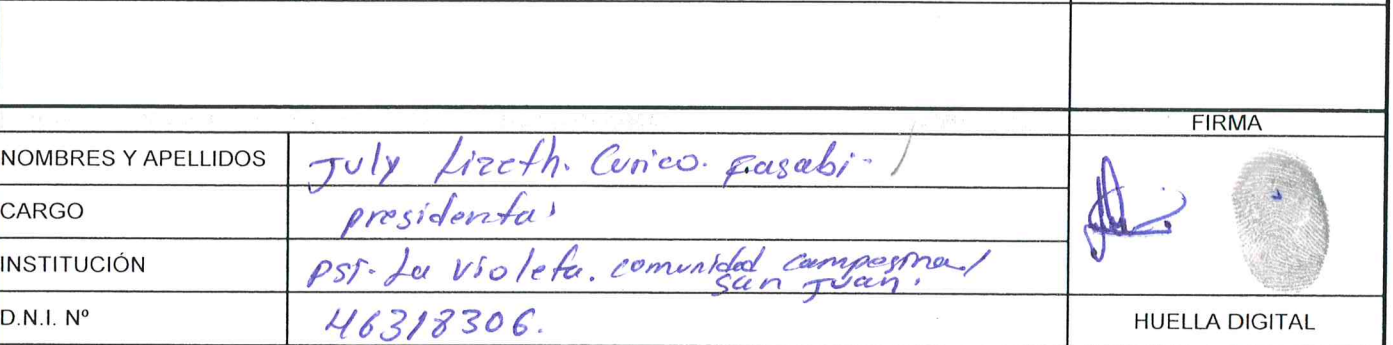 FIRMA
NOMBRES Y APELLIDOS July Lizeth. Curico. Pasabi-
CARGO presidenta
INSTITUCIÓN PSI- La Violeta. comunidad campesina/
San Juan.
D.N.I. Nº 46318306.
HUELLA DIGITAL